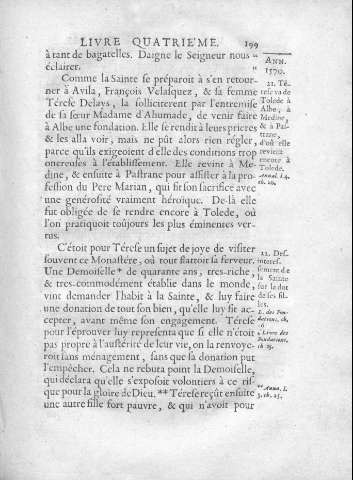 LIVRE QUATRIE'ME. 199
à tant de bagatelles. Daigne le Seigneur nous “
éclairer. “
Comme la Sainte se préparoit à s'en retour-
ner à Avila, François Velasquez, & sa femme
Térese Delays, la solliciterent par l'entremise
de sa sœur Madame d'Ahumade, de venir faire
à Albe une fondation. Elle se rendit à leurs prieres
& les alla voir, mais ne pût alors rien régler,
parce qu'ils exigeoient d'elle des conditions trop
onereuses à l'établissement. Elle revint à Me-
dine, & ensuite à Pastrane pour assister à la pro-
fession du Pere Marian, qui fit son sacrifice avec
une génerosité vraiment héroïque. De-là elle
fut obligée de se rendre encore à Tolede, où
l'on pratiquoit toûjours les plus éminentes ver-
tus.
C'étoit pour Térese un sujet de joye de visiter
souvent ce Monastére, où tout flattoit sa ferveur.
Une Demoiselle * de quarante ans, tres-riche,
& tres-commodément établie dans le monde,
vint demander l'habit à la Sainte, & luy faire
une donation de tout son bien, qu'elle luy fit ac-
cepter, avant même son engagement. Térese
pour l'éprouver luy representa que si elle n'étoit
pas propre à l'austérité de leur vie, on la renvoye-
roit sans ménagement, sans que sa donation put
l'empêcher. Cela ne rebuta point la Demoiselle,
qui déclara qu'elle s'exposoit volontiers à ce ris-
que pour la gloire de Dieu. ** Térese reçût ensuite
une autre fille fort pauvre, & qui n'avoit pour
ANN.
1570.
21. Té-
rese va de
Tolede à
Albe, à
Medine,
& à Pas-
trane,
d'où elle
revient
encore à
Tolede.
Annal. l. 4.
ch. 10.
22. Des-
interes-
sement de
la Sainte
sur la dot
de ses fil-
les.
L. des Fon-
dations, ch.
* Livre des
Fondations,
ch. 15.
** Anna. l.
3. ch. 25.